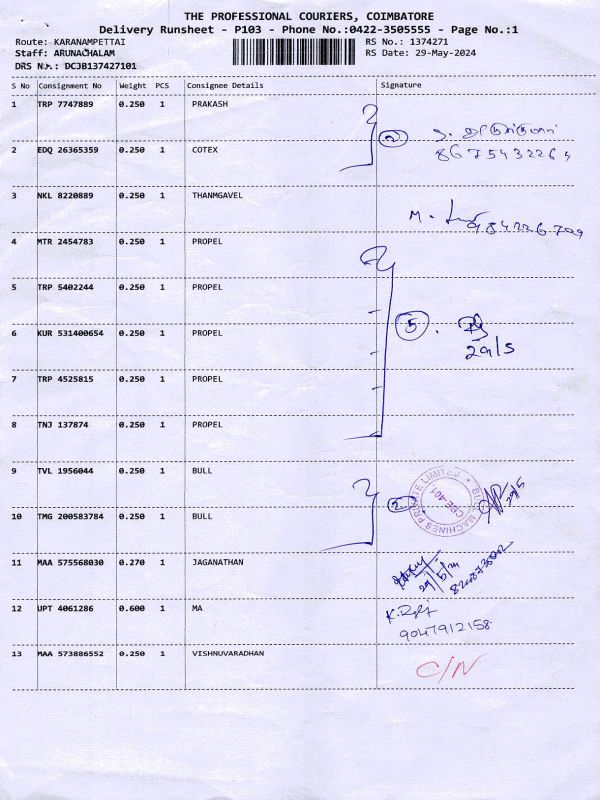 THE PROFESSIONAL COURIERS, COIMBATORE
Delivery Runsheet - P103 - Phone No.:0422-3505555 - Page No.:1
Route: KARANAMPETTAI RS No.: 1374271
Staff: ARUNACHALAM RS Date: 29-May-2024
DRS No.: DCJB137427101
S No Consignment No Weight PCS Consignee Details Signature
1 TRP 7747889 0.250 1 PRAKASH
2
8675432264
2 EDQ 26365359 0.250 1 COTEX
3 NKL 8220889 0.250 1 THANMGAVEL
M.
4 MTR 2454783 0.250 1 PROPEL
5 TRP 5402244 0.250 1 PROPEL
6 KUR 531400654 0.250 1 PROPEL
5
29/5
7 TRP 4525815 0.250 1 PROPEL
8 TNJ 137874 0.250 1 PROPEL
9 TVL 1956044 0.250 1 BULL
2
BULL MACHINES PRIVATE LIMITED
CBE-401
29/5
10 TMG 200583784 0.250 1 BULL
11 MAA 575568030 0.270 1 JAGANATHAN
29/5/24
12 UPT 4061286 0.600 1 MA
9047912158
13 MAA 573886552 0.250 1 VISHNUVARADHAN
C/N